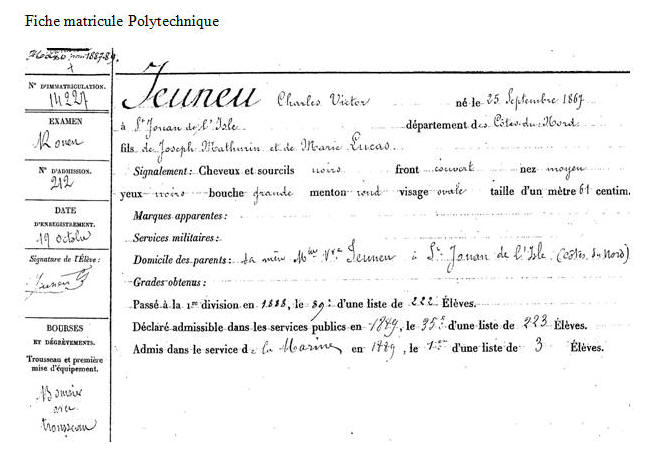 Fiche matricule Polytechnique
1887-89
N° D'IMMATRICULATION.
14227
EXAMEN
Rouen
N° D'ADMISSION.
212
DATE
D'ENREGISTREMENT.
19 octobre
Signature de l'Élève:
Jeuneu
BOURSES
ET DÉGRÈVEMENTS.
Trousseau et première
mise d'équipement.
Boursier
avec
trousseau
Jeuneu Charles Victor né le 25 Septembre 1867
à St Jouan de l'Isle département des Côtes du Nord
fils de Joseph Mathurin et de Marie Lucas.
Signalement: Cheveux et sourcils noirs front couvert nez moyen
yeux noirs bouche grande menton rond visage ovale taille d'un mètre 61 centim.
Marques apparentes:
Services militaires:
Domicile des parents: sa mère Mme Vve Jeuneu à St Jouan de l'Isle (Côtes du Nord)
Grades obtenus:
Passé à la 1re division en 1888, le 89e d'une liste de 222 Élèves.
Déclaré admissible dans les services publics en 1889, le 35e d'une liste de 223 Élèves.
Admis dans le service de la Marine en 1889, le 1er d'une liste de 3 Élèves.